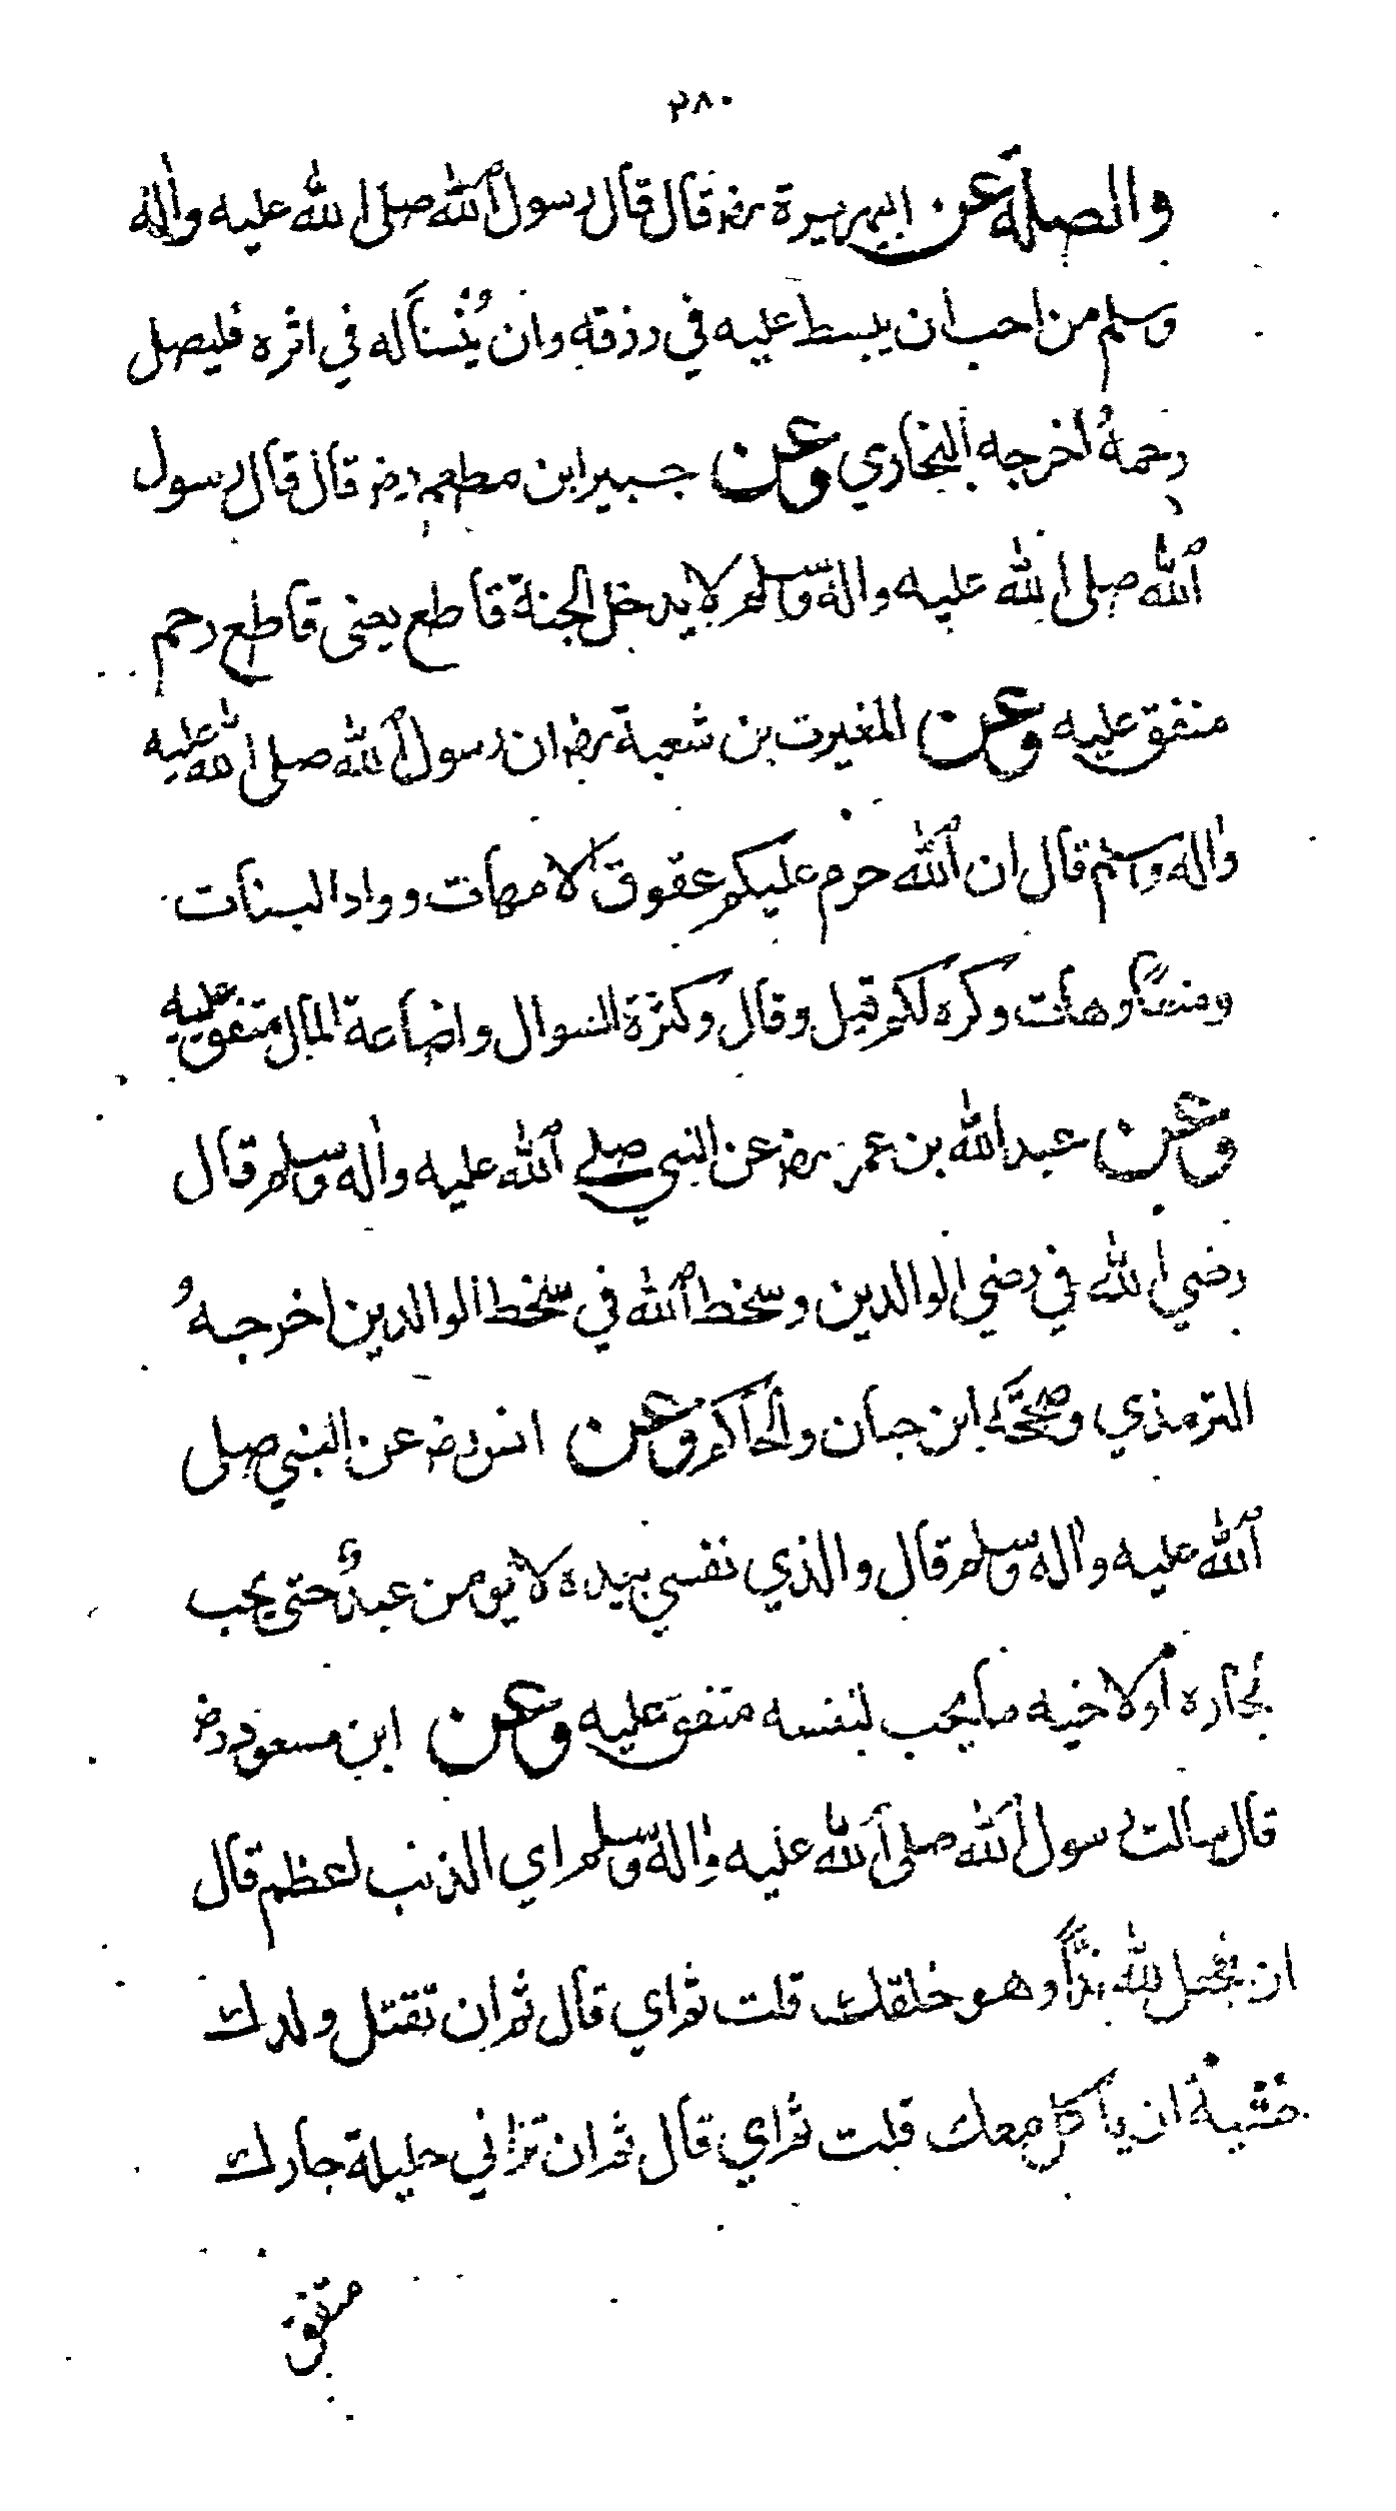 ٣٨٠
والصلة عن ابي هريرة رضه قال قال رسول الله صلى الله عليه واله
وسلم من احب ان يبسط عليه في رزقه وان يُنسأله في اثره فليصل
رحمهُ اخرجه البخاري وعن جبير ابن مطعم رضه قال قال رسول
الله صلى الله عليه واله وسلم لا يدخل الجنة قاطع يعنى قاطع رحم
متفق عليه وعن المغيرت بن شعبة رضه ان رسول الله صلى الله عليه
واله وسلم قال ان الله حرم عليكم عقوق الامهات وواد البنات
ومنعًا وهات وكره لكم قيل وقال وكثرة السوال واضاعة المال متفق عليه
وعن عبد الله بن عمر رضه عن النبي صلى الله عليه واله وسلم قال
رضي الله في رضي الوالدين وسخط الله في سخط الوالدين اخرجهُ
الترمذي وصححه ابن حبان والحاكم وعن انس رضه عن النبي صلى
الله عليه واله وسلم قال والذي نفسي بيده لا يومن عبدٌ حتى يحب
لجاره او لاخيه ما يحب لنفسه متفق عليه وعن ابن مسعود رضه
قال سالت رسول الله صلى الله عليه واله وسلم اي الذنب اعظم قال
ان تجعل لله ندًّا وهو خلقك قلت ثم اي قال ثم ان تقتل ولدك
خشية ان ياكل معك قلت ثم اي قال ثم ان تزاني حليلة جارك
متفق